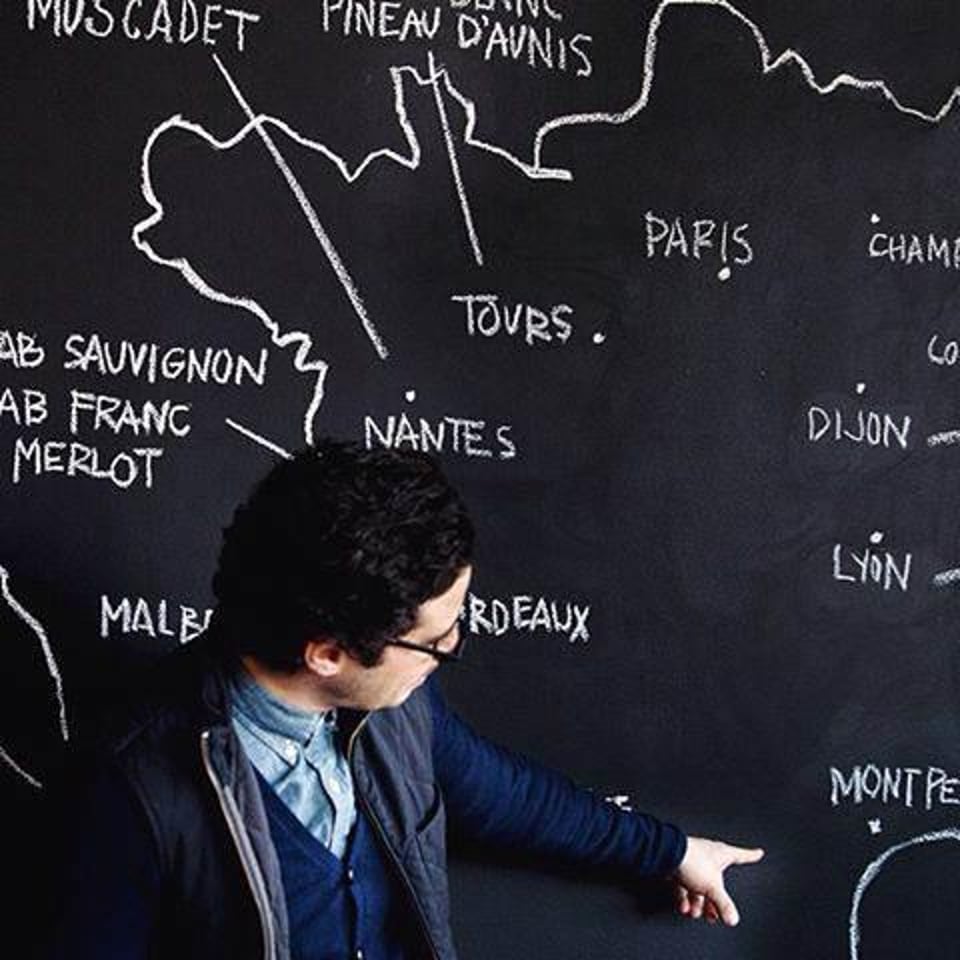 MUSCADET
BLANC
PINEAU D'AUNIS
PARIS
CHAMP
TOURS
AB SAUVIGNON
AB FRANC
MERLOT
NANTES
CO
DIJON
LYON
MALB
RDEAUX
MONTPE